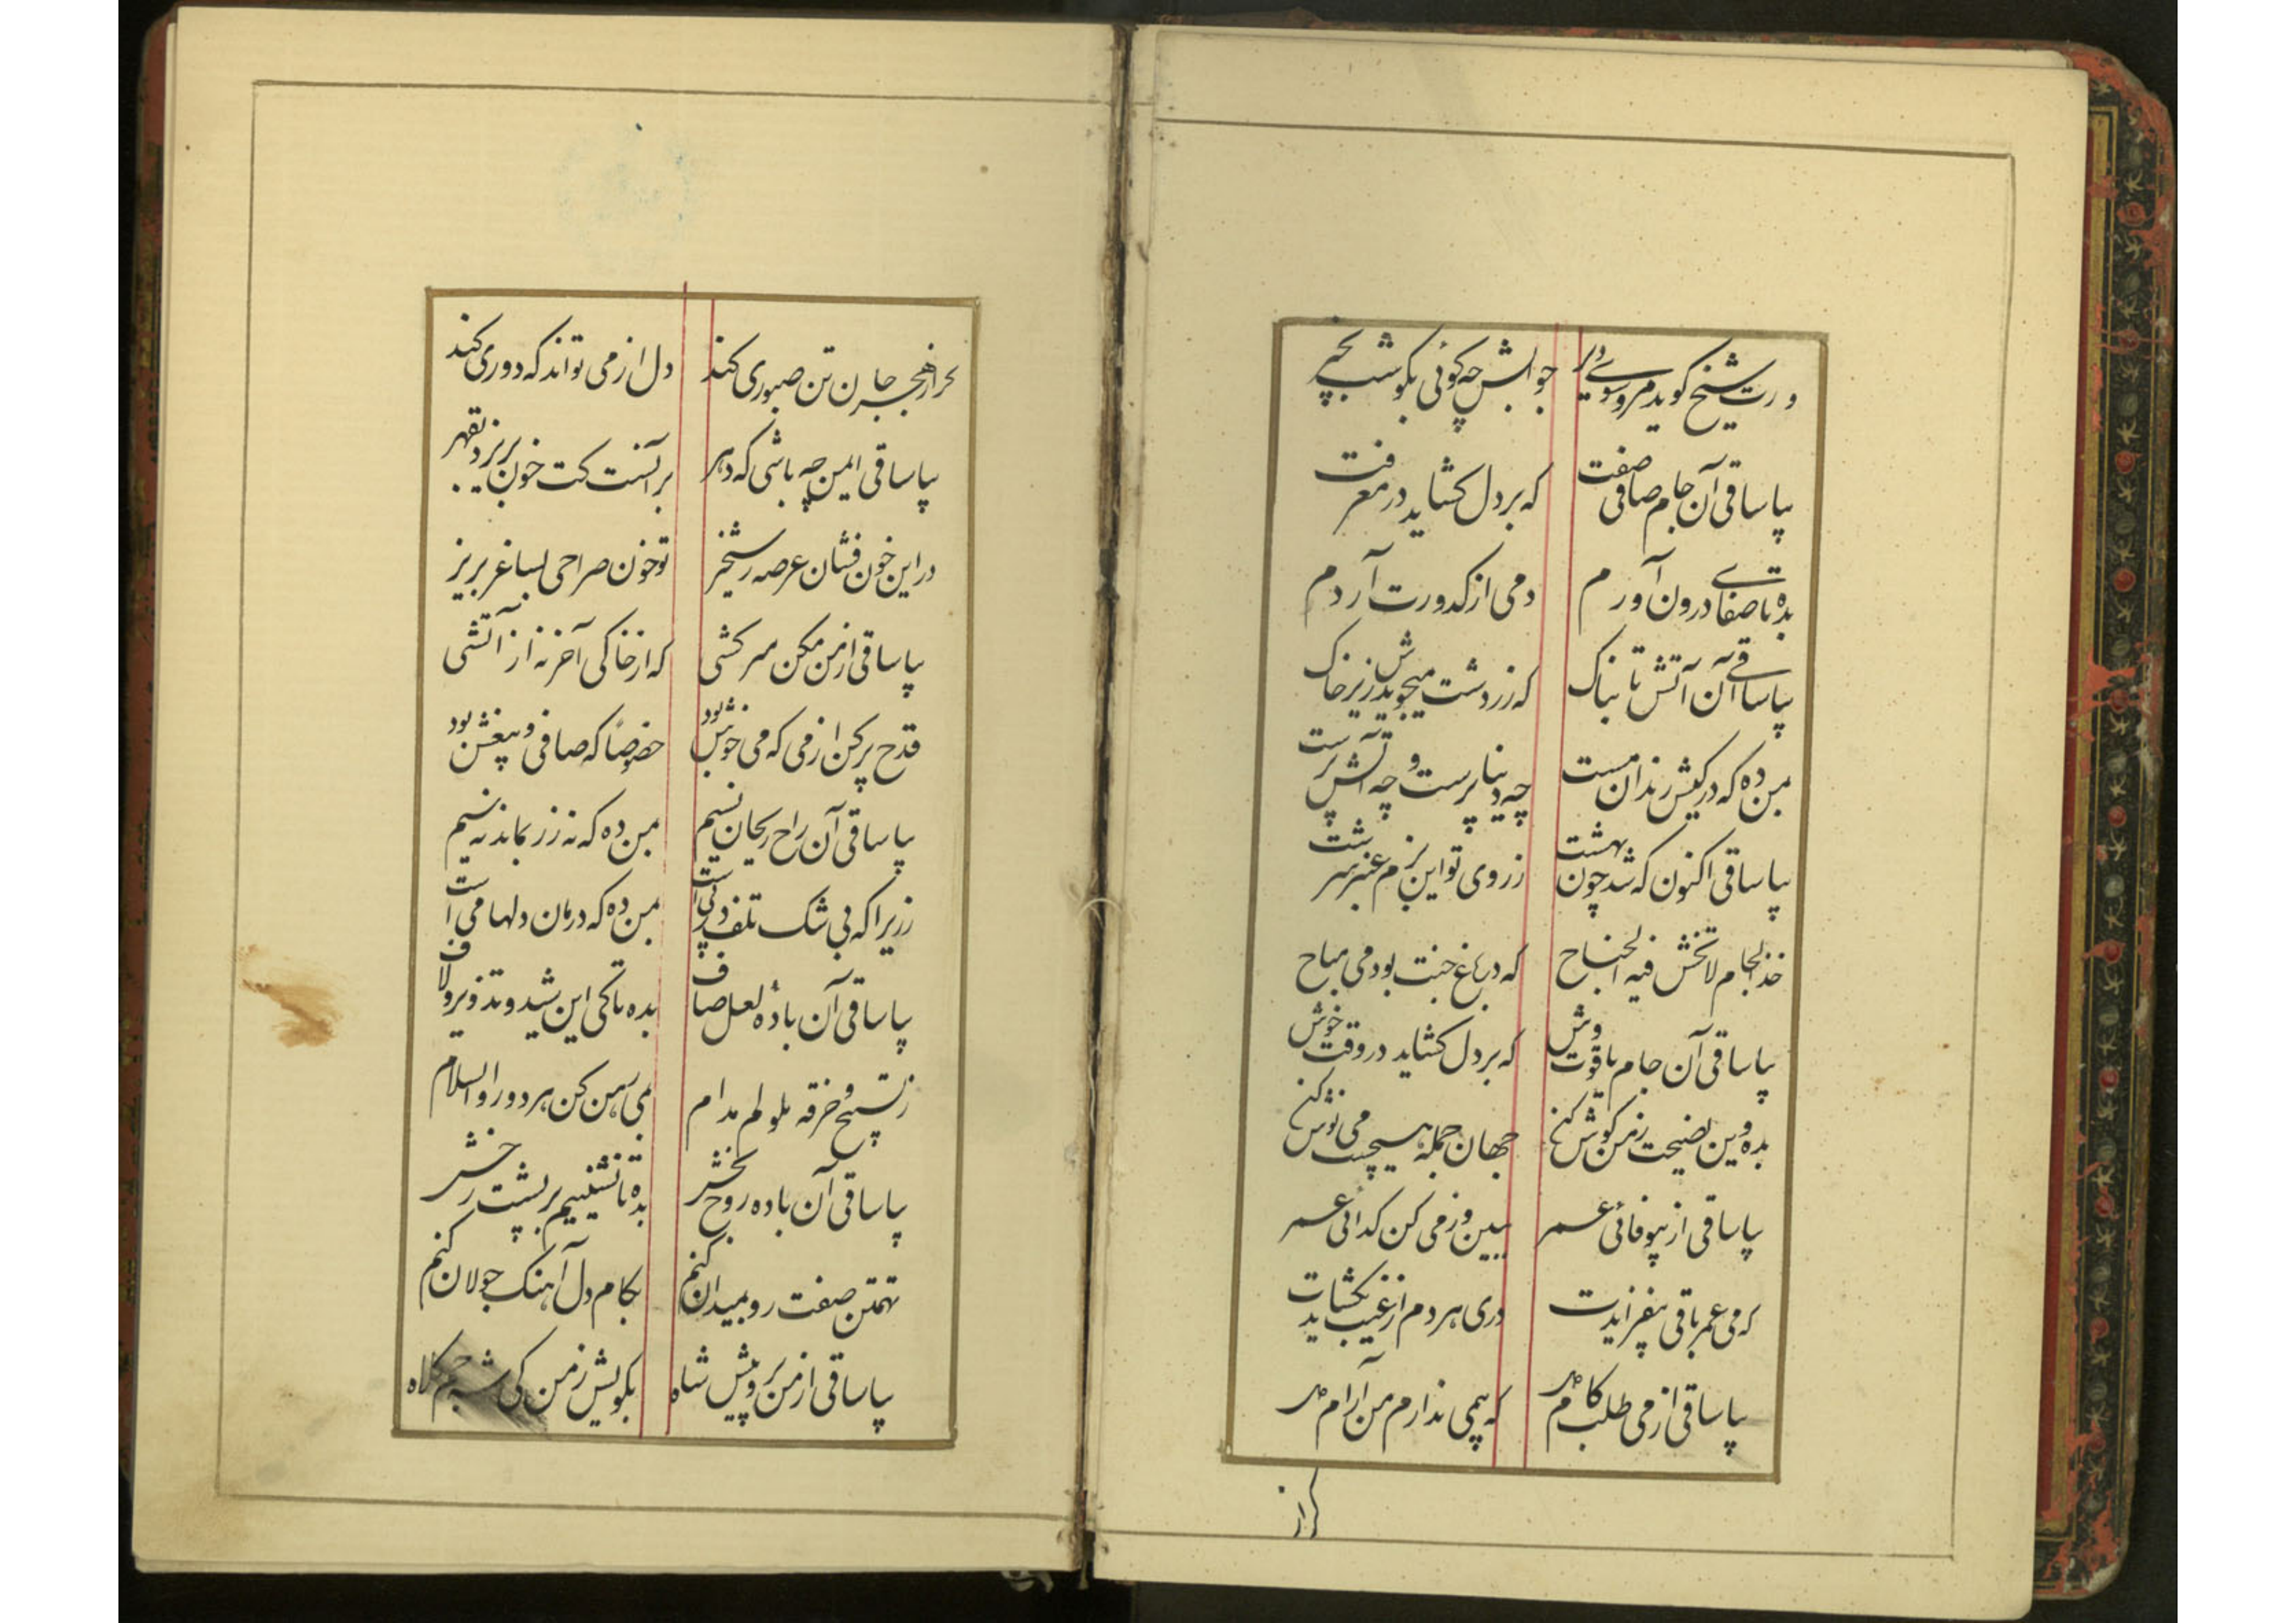 ورت شیخ گوید مرو سوی دیر جوابش چه گوئی بگو شب بخیر
بیا ساقی آن جام صافی صفت که بر دل گشاید در معرفت
بده تا صفای درون آوردم دمی از کدورت آردم
بیا ساقی آن آتش تابناک که زردشت میجویدش زیر خاک
بمن ده که در کیش رندان مست چه دنیا پرست و چه آتش پرست
بیا ساقی اکنون که شد چون بهشت ز روی تو این بزم عنبر سرشت
خذ الجام لا تخش فیه الجناح که در باغ جنت بود می مباح
بیا ساقی آن جام یاقوت وش که بر دل گشاید در وقت خوش
بده وین نصیحت ز من گوش کن جهان جمله هیچست می نوش کن
بیا ساقی از بیوفائی عمر ببین وز می کن گدائی عمر
که می عمر باقی بیفزایدت دری هر دم از غیب بگشایدت
بیا ساقی از می طلب کام دل که بی می ندارم من آرام دل
گر از
گر از هجر جان تن صبوری کند دل از می تواند که دوری کند
بیا ساقی ایمن چه باشی که دهر بر آنست کت خون بریزد بقهر
در این خون فشان عرصه رستخیز تو خون صراحی بساغر بریز
بیا ساقی از من مکن سرکشی که از خاکی آخر نه از آتشی
قدح پر کن از می که می خوش بود خصوصاً که صافی و بیغش بود
بیا ساقی آن راح ریحان نسیم بمن ده که نه زر بماند نه سیم
زریرا که بی شک تلف در پی است بمن ده که درمان دلها می است
بیا ساقی آن بادهٔ لعل صاف بده تا کی این شید و تذویر و لاف
ز تسبیح و خرقه ملولم مدام بمی رهن کن هر دو را والسلام
بیا ساقی آن باده روح بخش بده تا نشینیم بر پشت رخش
تهمتن صفت رو بمیدان کنم بکام دل آهنگ جولان کنم
بیا ساقی از من برو پیش شاه بگویش ز من کی شه جم کلاه